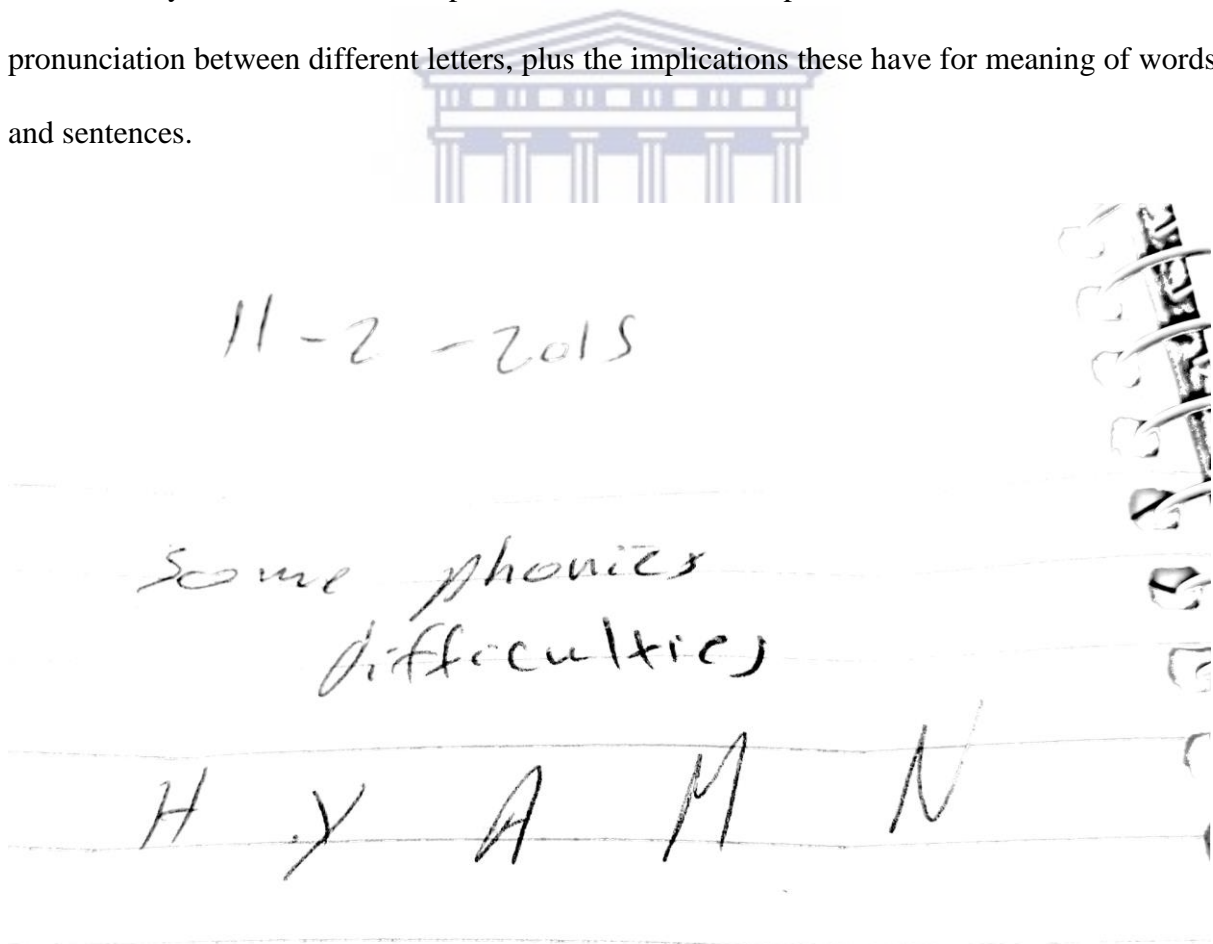 pronunciation between different letters, plus the implications these have for meaning of words
and sentences.
11-2-2015
Some phonics
difficulties
H Y A M N